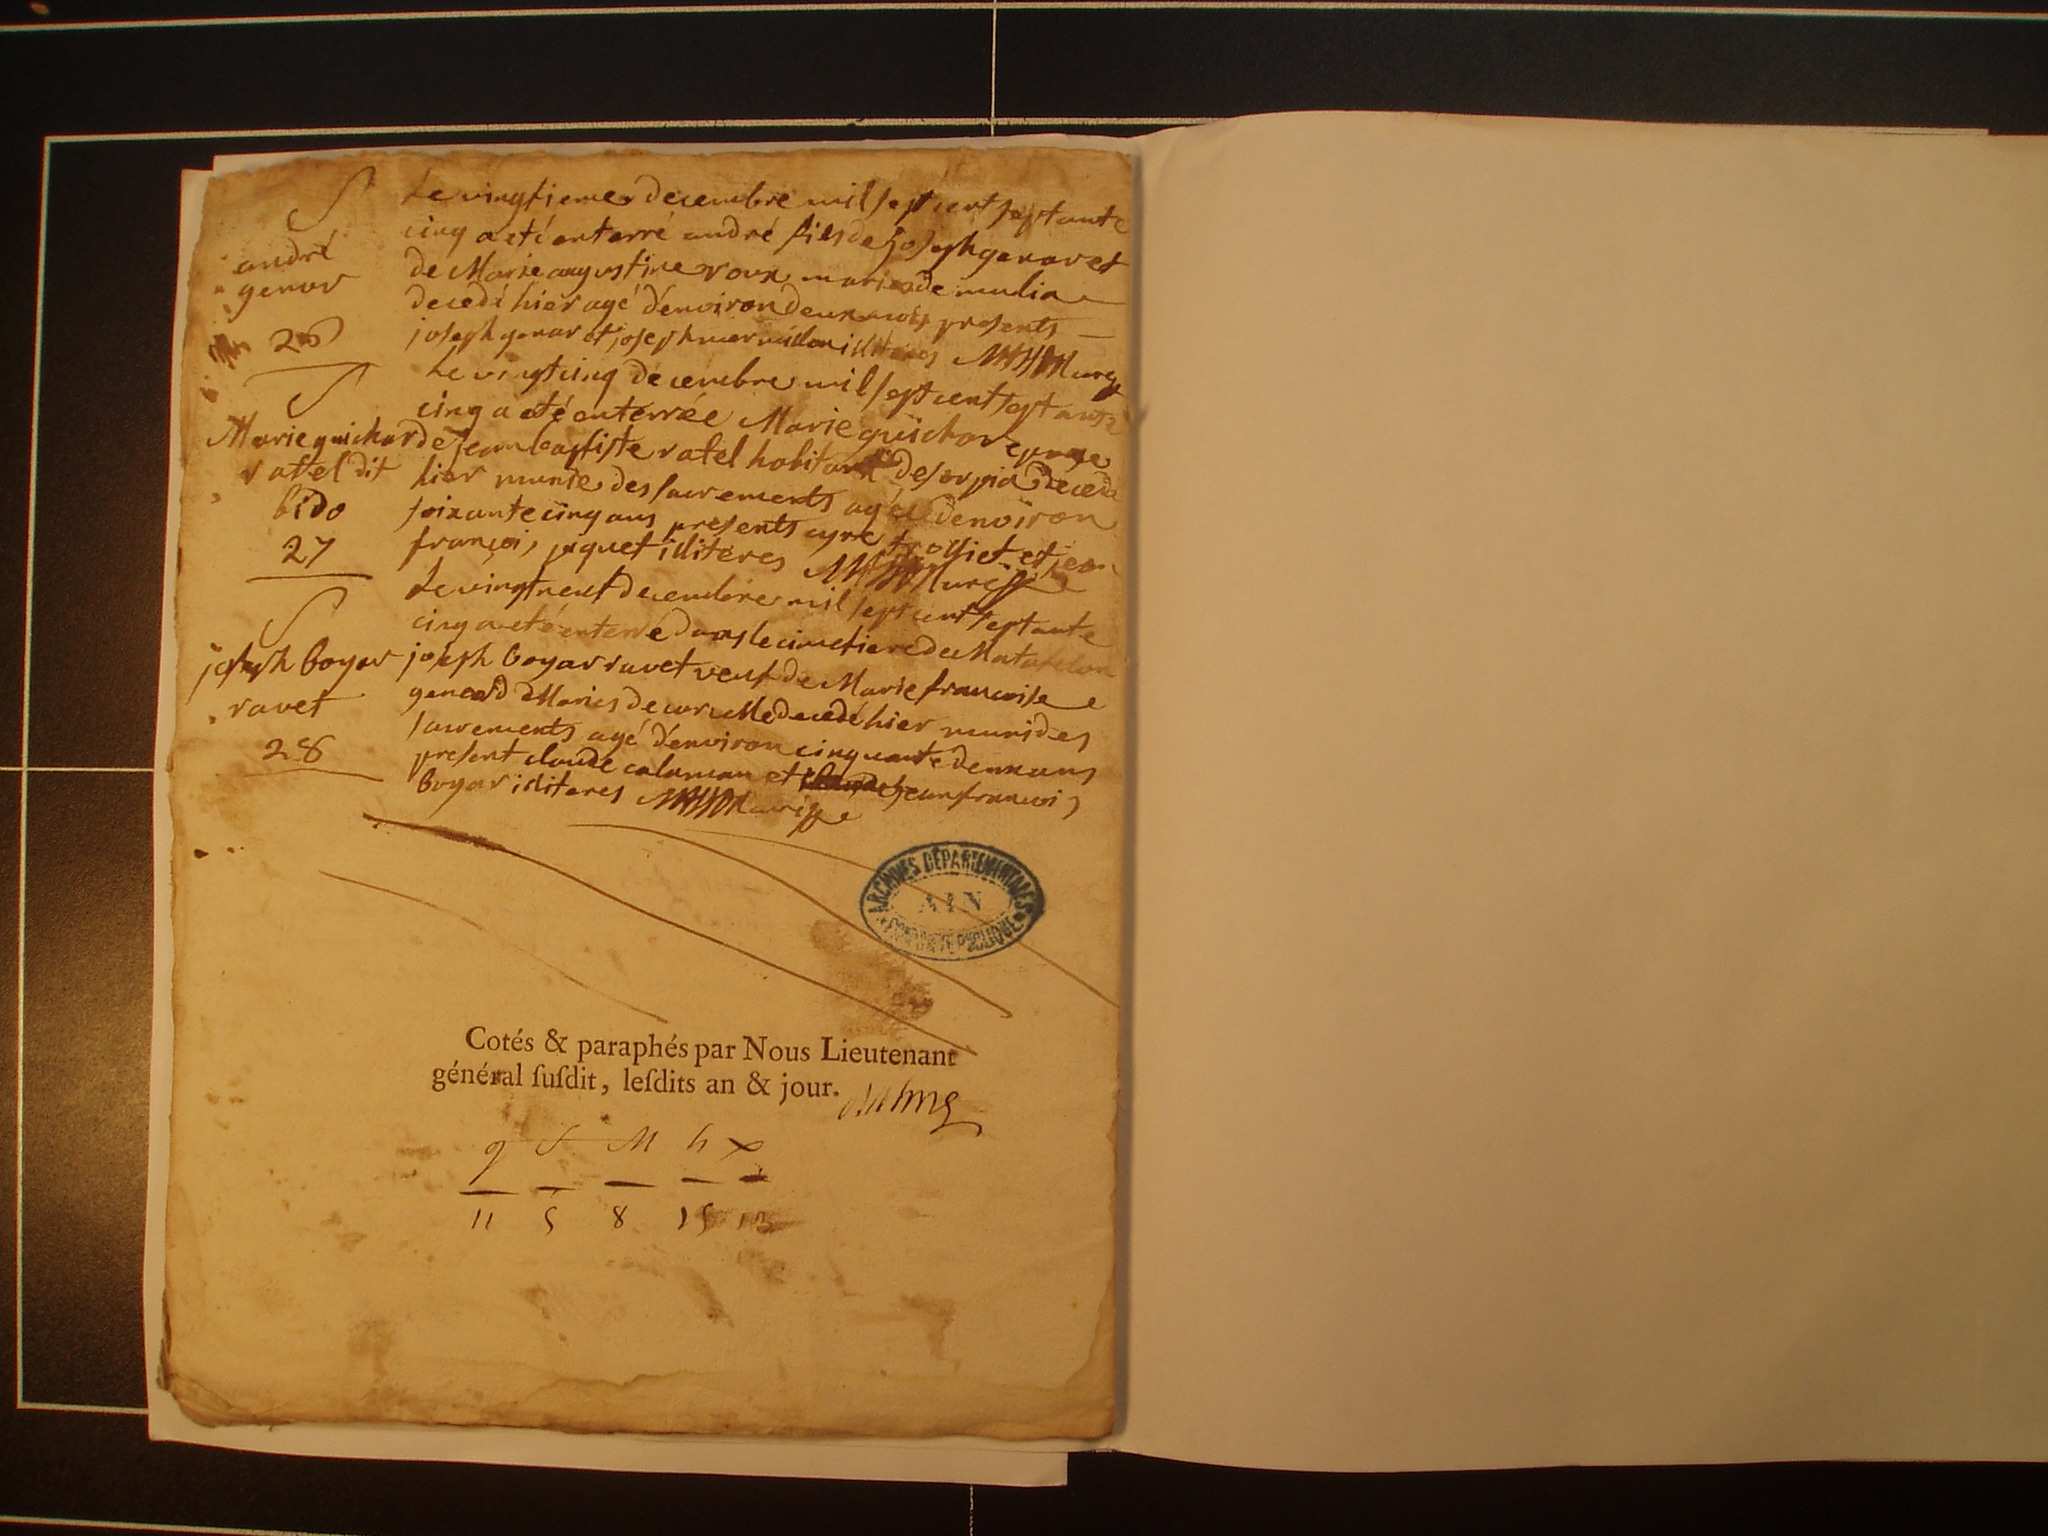 S
andré
genar
26
Le vingtieme decembre mil sept cent septante
cinq a eté enterré andré fils de Joseph genar et
de Marie augustine roux mariés de mulia
decedé hier agé d'environ deux mois presents
joseph genar et joseph mermillon illiteres
S
Marie guichar
ratel dit
bido
27
Le vingt cinq decembre mil sept cent septante
cinq a eté enterrée Marie guichar epouse
de jean baptiste ratel habitant de sorpia decedé
hier munie des sacrements agée d'environ
soixante cinq ans presents cyre trolliet et jean
françois juquet illiteres
S
joseph boyar
ravet
28
Le vingt neuf decembre mil sept cent septante
cinq a eté enterré dans le cimetiere de Matafelon
joseph boyar ravet veuf de Marie francoise
genard Maries de corcelle decedé hier muni des
sacrements agé d'environ cinquante deux ans
present claude calaman et jean francois
boyar illiteres
ARCHIVES DÉPARTEMENTALES
AIN
Cotés & paraphés par Nous Lieutenant
général susdit, lesdits an & jour.
9 S M h x
11 5 8 15 13